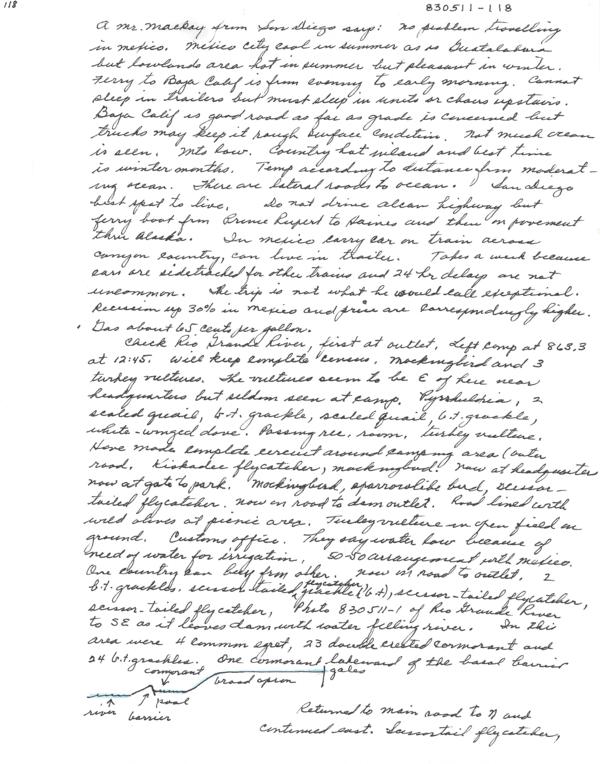 118
830511-118
A Mr. Mackay from San Diego says: No problem travelling
in Mexico. Mexico city cool in summer as is Guatalahara
but lowlands area hot in summer but pleasant in winter.
Ferry to Baja Calif is from evening to early morning. Cannot
sleep in trailers but must sleep in units or chairs upstairs.
Baja Calif is good road as far as grade is concerned but
trucks may keep it rough surface condition. Not much ocean
is seen. Mts low. Country hot inland and best time
is winter months. Temp according to distance from moderat-
ing ocean. There are lateral roads to ocean. San Diego
best spot to live. Do not drive alcan highway but
ferry boat from Prince Rupert to Haines and then on pavement
thru Alaska. In Mexico carry car on train across
canyon country, can live in trailer. Takes a week because
cars are sidetracked for other trains and 24 hr delays are not
uncommon. The trip is not what he would call exceptional.
Recession up 30% in Mexico and price are correspondingly higher.
Gas about 65 cents per gallon.
Check Rio Grande River, first at outlet, Left camp at 863.3
at 12:45. Will keep complete census. Mockingbird and 3
turkey vultures. The vultures seem to be E of here near
headquarters but seldom seen at camp. Pyrrhuloxia, 2
scaled quail, b.t. grackle, scaled quail, b.t. grackle,
white-winged dove. Passing rec. room, turkey vulture.
Have made complete circuit around camping area (outer
road. Kiskadee flycatcher, mockingbird. Now at headquarter
now at gate to park. Mockingbird, sparrowlike bird, scissor-
tailed flycatcher. Now on road to dam outlet. Road lined with
wild olives at picnic area. Turkey vulture in open field on
ground. Customs office. They say water low because of
need of water for irrigation, 50-50 arrangement with Mexico.
One country can buy from other. Now on road to outlet, 2
b.t. grackles. scissor-tailed flycatcher, grackle (b.t), scissor-tailed flycatcher,
scissor-tailed flycatcher, Photo 830511-1 of Rio Grande River
to SE as it leaves dam with water filling river. In this
area were 4 common egret, 23 double crested cormorant and
24 b.t. grackles. One cormorant lakeward of the basal barrier
cormorant
broad apron
gates
river
barrier
pool
Returned to main road to N and
continued east. Scissortail flycatcher,